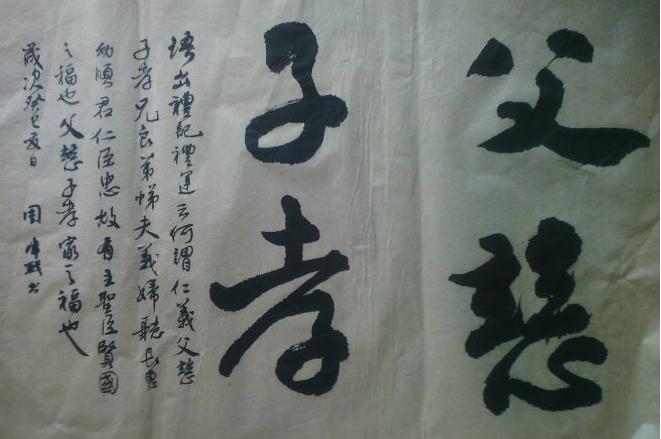 父慈
子孝
語出禮記禮運云何謂仁義父慈
子孝兄良弟悌夫義婦聽長惠
幼順君仁臣忠故有主聖臣賢國
之福也父慈子孝家之福也
歲次癸巳夏日 周